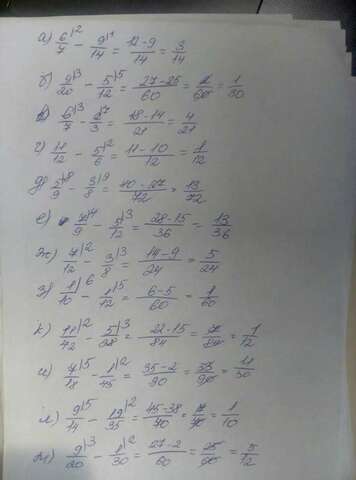 а) 6/7 |2 − 9/14 |1 = 12−9/14 = 3/14
б) 9/20 |3 − 5/12 |5 = 27−25/60 = 2/60 = 1/30
в) 6/7 |3 − 2/3 |7 = 18−14/21 = 4/21
г) 11/12 − 5/6 |2 = 11−10/12 = 1/12
д) 5/9 |8 − 3/8 |9 = 40−27/72 = 13/72
е) 7/9 |4 − 5/12 |3 = 28−15/36 = 13/36
ж) 7/12 |2 − 3/8 |3 = 14−9/24 = 5/24
з) 1/10 |6 − 1/12 |5 = 6−5/60 = 1/60
к) 11/42 |2 − 5/28 |3 = 22−15/84 = 7/84 = 1/12
и) 7/18 |5 − 1/45 |2 = 35−2/90 = 33/90 = 11/30
л) 9/14 |5 − 19/35 |2 = 45−38/70 = 7/70 = 1/10
м) 9/20 |3 − 1/30 |2 = 27−2/60 = 25/60 = 5/12